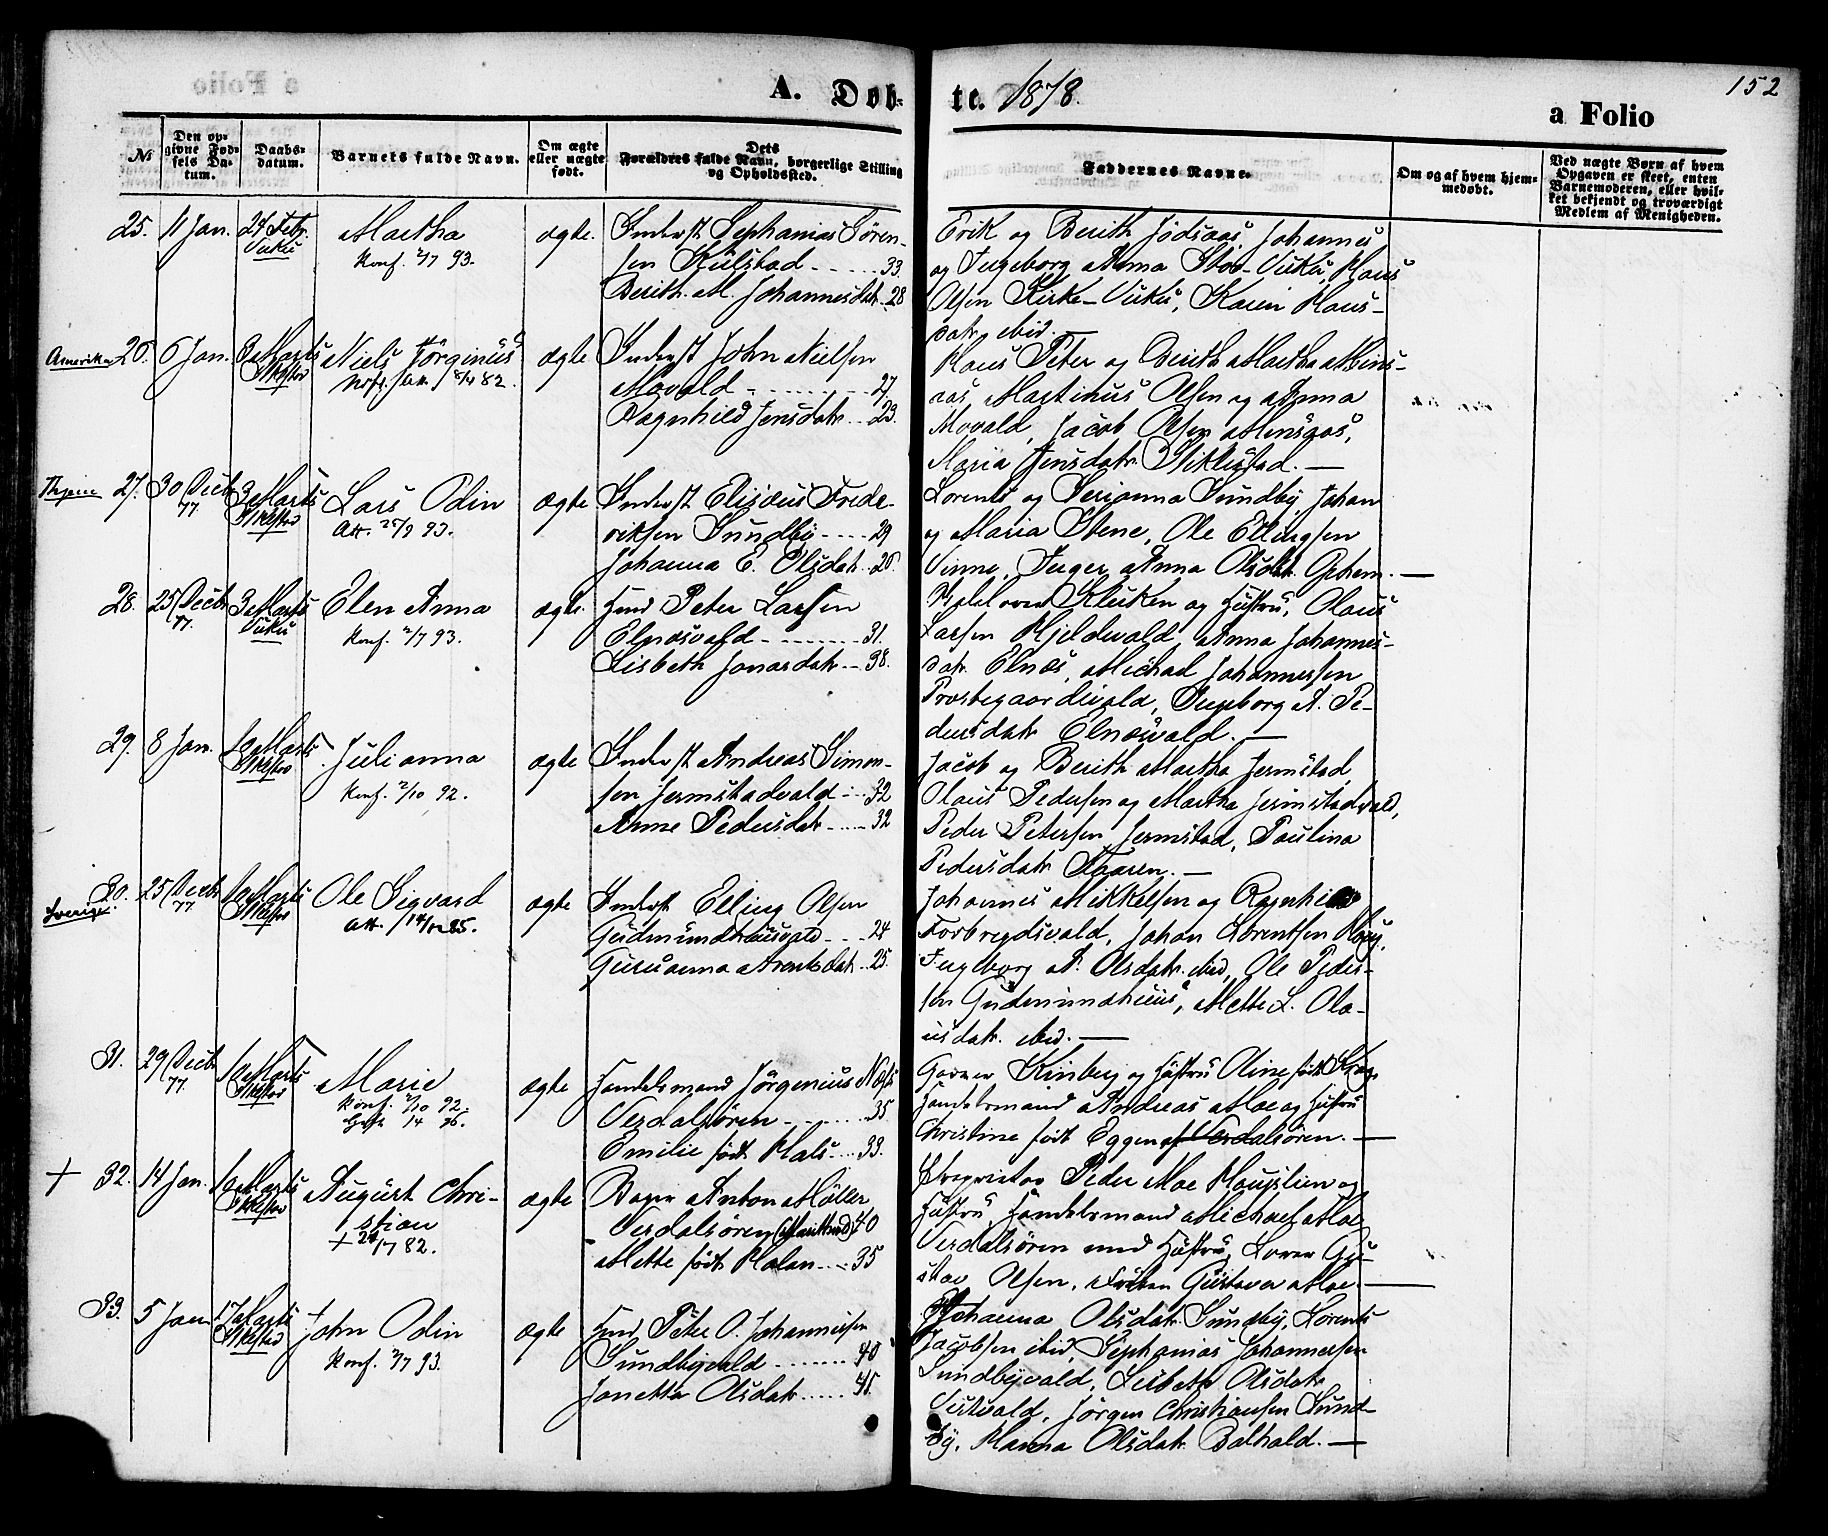 152
A. Døb-te. 1878. a Folio
№
Den op-
givne Fød-
sels Da-
tum.
Daabs-
datum.
Barnets fulde Navn.
Om ægte
eller uægte
født.
Dets
Forældres fulde Navn, borgerlige Stilling
og Opholdssted.
Faddernes Navne.
Om og af hvem hjem-
medøbt.
Ved uægte Børn af hvem
Opgaven er skeet, enten
Barnemoderen, eller hvil-
ket bekjendt og troværdigt
Medlem af Menigheden.
25. 11 Jan. 24 Febr.
Vuku
Martha
Konf. 2/7 93.
ægte.
Inderst Sephanias Søren-
sen Kulstad - - - 33.
Berith M. Johannesdatr. 28
Erik og Berith Jødsaas, Johannes
og Ingeborg Anna Stor-Vuku, Klaus
Olsen Kirke-Vuku, Karin Klaus-
datr. ibid. —
Amerika 26. 6 Jan. 3 Marts
Stiklestad
Niels Jørginius
ægte
Inderst John Nielsen
Movald - - - 27.
Ragnhild Jensdatr. 23.
Klaus Peter og Berith Martha Mins-
aas, Martinus Olsen og Anna
Movald, Jacob Olsen Minsaas,
Maria Jensdatr. Stiklestad. —
27. 30 Decbr.
77
3 Marts
Lars Odin
Att. 25/9 93.
ægte
Inderst Elisæus Frede-
riksen Sundby - - - 29
Johanna E. Olsdatr. 26.
Lorents og Serianna Sundby, Johan
og Maria Stene, Ole Ellingsen
Vinne, Inger Anna Olsdatr. —
28. 25 Decbr.
77.
3 Marts
Vuku
Elen Anna
Konf. 2/7 93.
ægte.
Husmd Peter Larsen
Elnesvald - - - 31.
Lisbeth Jonasdatr. - 38.
Kluken og Hustru, Olaus
Larsen Hjeldvald, Anna Johannes-
datr. Elnes, Michael Johannessen
Præstegaardsvald, Ingeborg A. Pe-
dersdatr. Elnesvald. —
29. 8 Jan. 10 Marts
Julianna
Konf. 2/10 92.
ægte
Inderst Andreas Simon-
sen Jermstadvald - - 32
Anne Pedersdatr. - - 32
Jacob og Berith Martha Jermstad
Olaus Pedersen og Martha Jermstadvald,
Peder Petersen Jermstad, Paulina
Pedersdatr. Haaren. —
Sverige. 30. 25 Decbr.
77.
10 Marts
Ole Sigvard
ægte
Inderst Elling Olsen
Gudmundhusvald - - 24
Guruanna Arentsdatr. 25.
Johannes Mikkelsen og Ragnhild
Forbregdsvald, Johan Lorentsen Haug,
Ingeborg A. Olsdatr. ibid, Ole Peder-
sen Gudmundhuus, Mette L. Ola-
usdatr. ibid. —
31. 29 Decbr.
77.
10 Marts
Marie
Konf. 2/10 92.
ægte
Handelsmand Jørgenius Næss
Verdalsøren - - - 35
Emilie født Hals - - 33.
Garver Kinberg og Hustru Oline født
Handelsmand Andreas Moe og Hustru
Christine født Eggen af Verdalsøren. —
+ 32. 14 Jan. 10 Marts
August Chri-
stian
+ 24/7 82.
ægte
Bager Anton Møller
Verdalsøren 40
Mette født Holan - - 35
Proprietær Peder Moe Hauglien og
Hustru, Handelsmand Michael Moe
Verdalsøren med Hustru, Garver Gu-
stav Olsen, Frøken Gustava Moe. —
33. 5 Jan 17 Marts
John Odin
Konf. 2/7 93.
ægte
Husmd Peter O. Johannessen
Sundbyvald - - - 40
Janetta Olsdatr. - - - 45.
Johanna Olsdatr. Sundby, Lorents
Jacobsen ibid, Sephanias Johannessen
Sundbyvald, Lisbeth Olsdatr.
Jørgen Christiansen Sund-
by, Hanna Olsdatr. Balhald. —